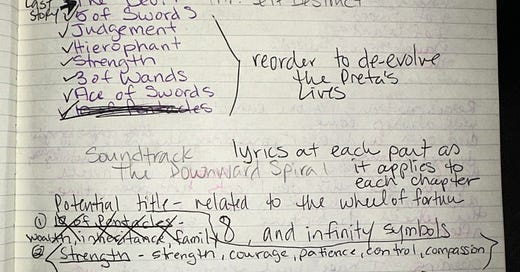 Last
Story
5 of Swords
✓Judgement
✓Hierophant
✓Strength
✓3 of Wands
✓Ace of Swords
reorder to de-evolve
the Preta's
Lives
Soundtrack lyrics at each part as
The Downward Spiral it applies to
each chapter
Potential title - related to the wheel of fortune
① 10 of Pentacles -
wealth, inheritance, family 8, and infinity symbols
② Strength - strength, courage, patience, control, compassion